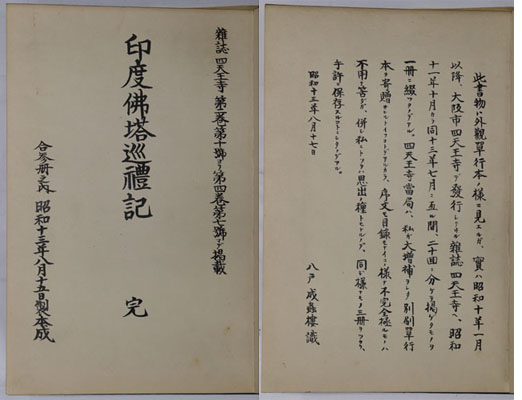 雜誌四天王寺 第二卷第十號ヨリ第四卷第七號マデ掲載
印度佛塔巡禮記 完
合參册之内 昭和十三年八月十五日製本成
此書物ハ外觀單行本ノ樣ニ見エルガ、實ハ昭和十年一月
以降 大阪市四天王寺デ發行シテイル雜誌四天王寺ヘ、昭和
十一年十月カラ同十三年七月ニ亙ル間、二十回ニ分ケテ掲ゲタモノヲ
一冊ニ綴ツタノデアル、四天王寺當局ハ、私ガ大増補ヲシタ別刷單行
本ヲ寄贈 序文モ目録モナイ 樣ナ不完全極ルモノハ
不用ノ筈ダガ、併シ私ニトツテハ思出ノ種トモナルノデ、同ジ樣ナモノ三冊ヲツクリ、
手許ニ保存スルコトニシタノデアル。
昭和十三年八月十七日
八戸成蟲樓識